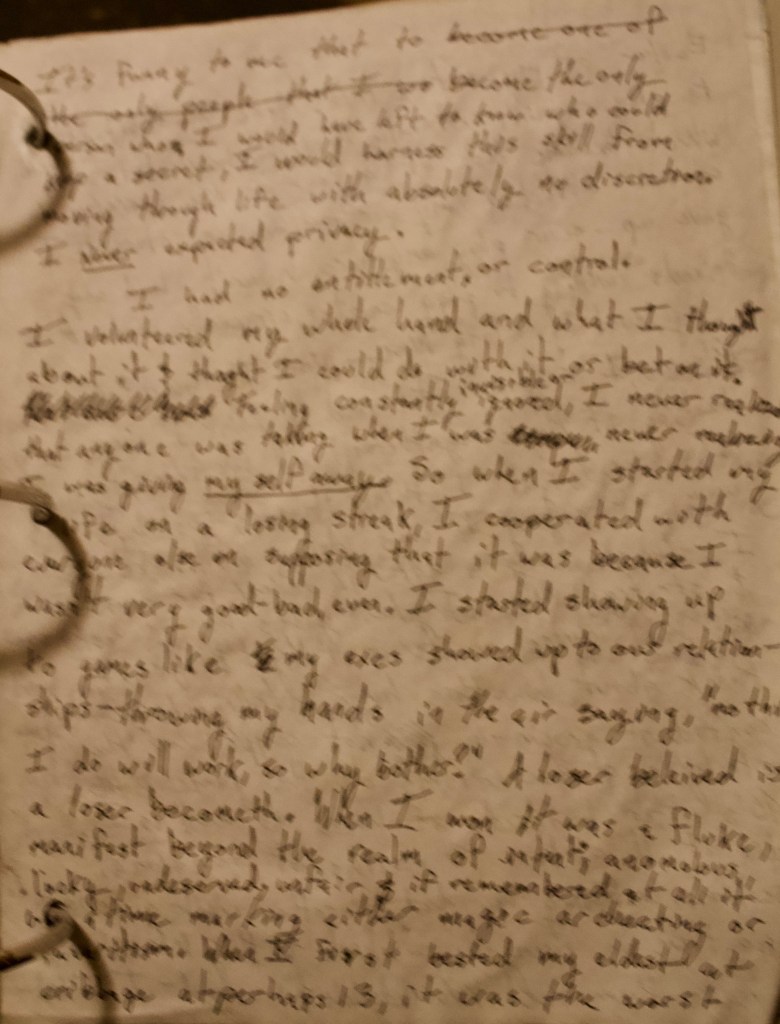 It's funny to me that to become one of
the only people that I become the only
person whom I would have left to know who could
a secret, I would harness this skill from
moving through life with absolutely no discretion.
I never expected privacy.
I had no entitlement, or control.
I volunteered my whole hand and what I thought
about it & thought I could do with it or bet on it.
Feeling constantly invisible ignored, I never
that anyone was when I was never
I was giving my self away. So when I started my
life on a losing streak, I cooperated with
everyone else on supposing that it was because I
wasn't very good-bad, even. I started showing up
to games like my exes showed up to our relation-
ships-throwing my hands in the air saying, "noth
I do will work, so why bother?" A loser beleived is
a loser becometh. When I won it was a fluke,
manifest beyond the realm of intent, anomalous,
lucky, undeserved, unfair & if remembered at all it
time marking either magic or cheating or
When I first bested my eldest at
cribbage at perhaps 13, it was the worst